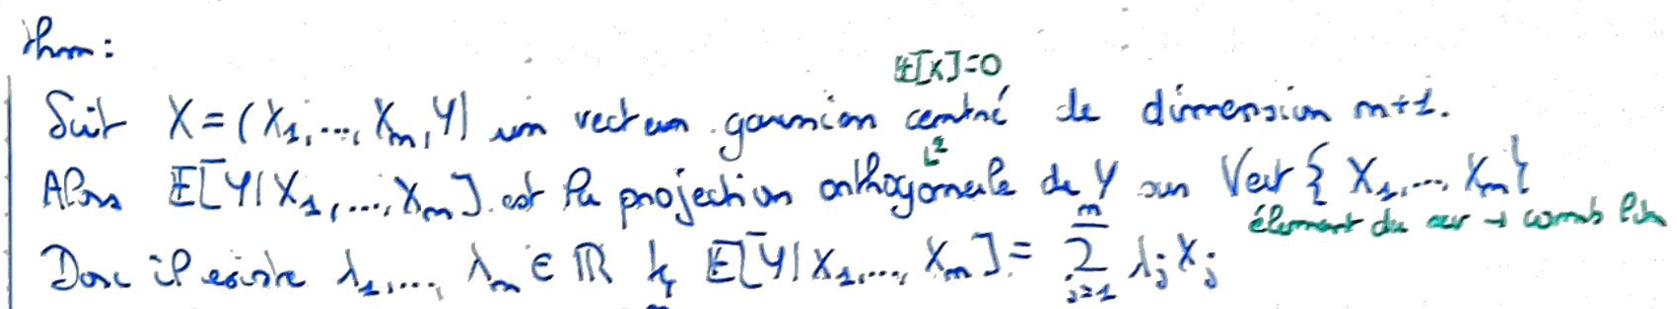 thm :
E[X]=0
Soit X = (X₁, ..., Xₙ, Y) un vecteur gaussien centré de dimension n+1.
L²
Alors E[Y|X₁, ..., Xₙ] est la projection orthogonale de Y sur Vect { X₁, ..., Xₙ}
élément du ev → comb lin
Donc il existe λ₁, ..., λₙ ∈ ℝ tq E[Y|X₁, ..., Xₙ] = ∑ⁿⱼ₌₁ λⱼ Xⱼ